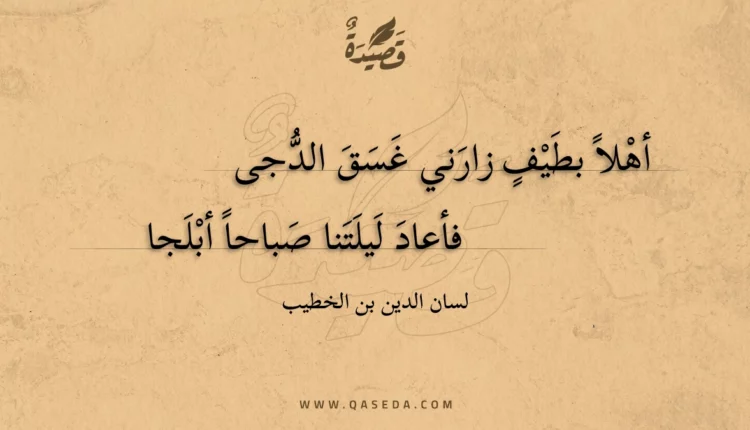 قَصِيدَةٌ
أهْلاً بطَيْفٍ زارَني غَسَقَ الدُّجى
فأعادَ لَيلَتَنا صَباحاً أبْلَجا
لسان الدين بن الخطيب
WWW.QASEDA.COM